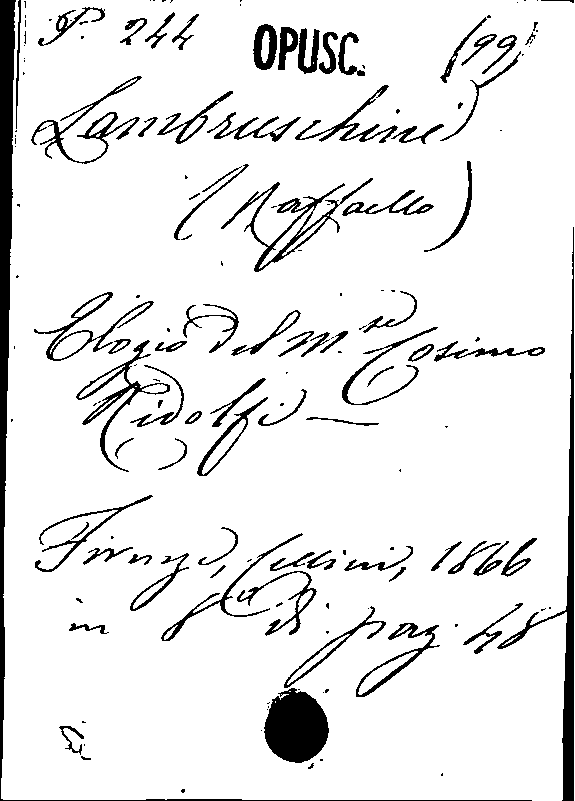 P. 244 OPUSC. (99)
Lambruschini
(Raffaello)
Elogio del M.se Cosimo
Ridolfi —
Firenze, Cellini, 1866
in 8º di pag. 48